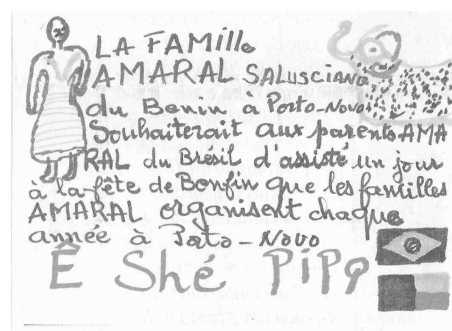 LA FAMille
AMARAL SALUSCIANO
du Benin a Porto-Novo
Souhaiterait aux parents AMA
RAL du Brésil d'assisté un jour
à la fête de Bonfin que les familles
AMARAL organisent chaque
année à Porto-Novo
Ê Shé PiPo